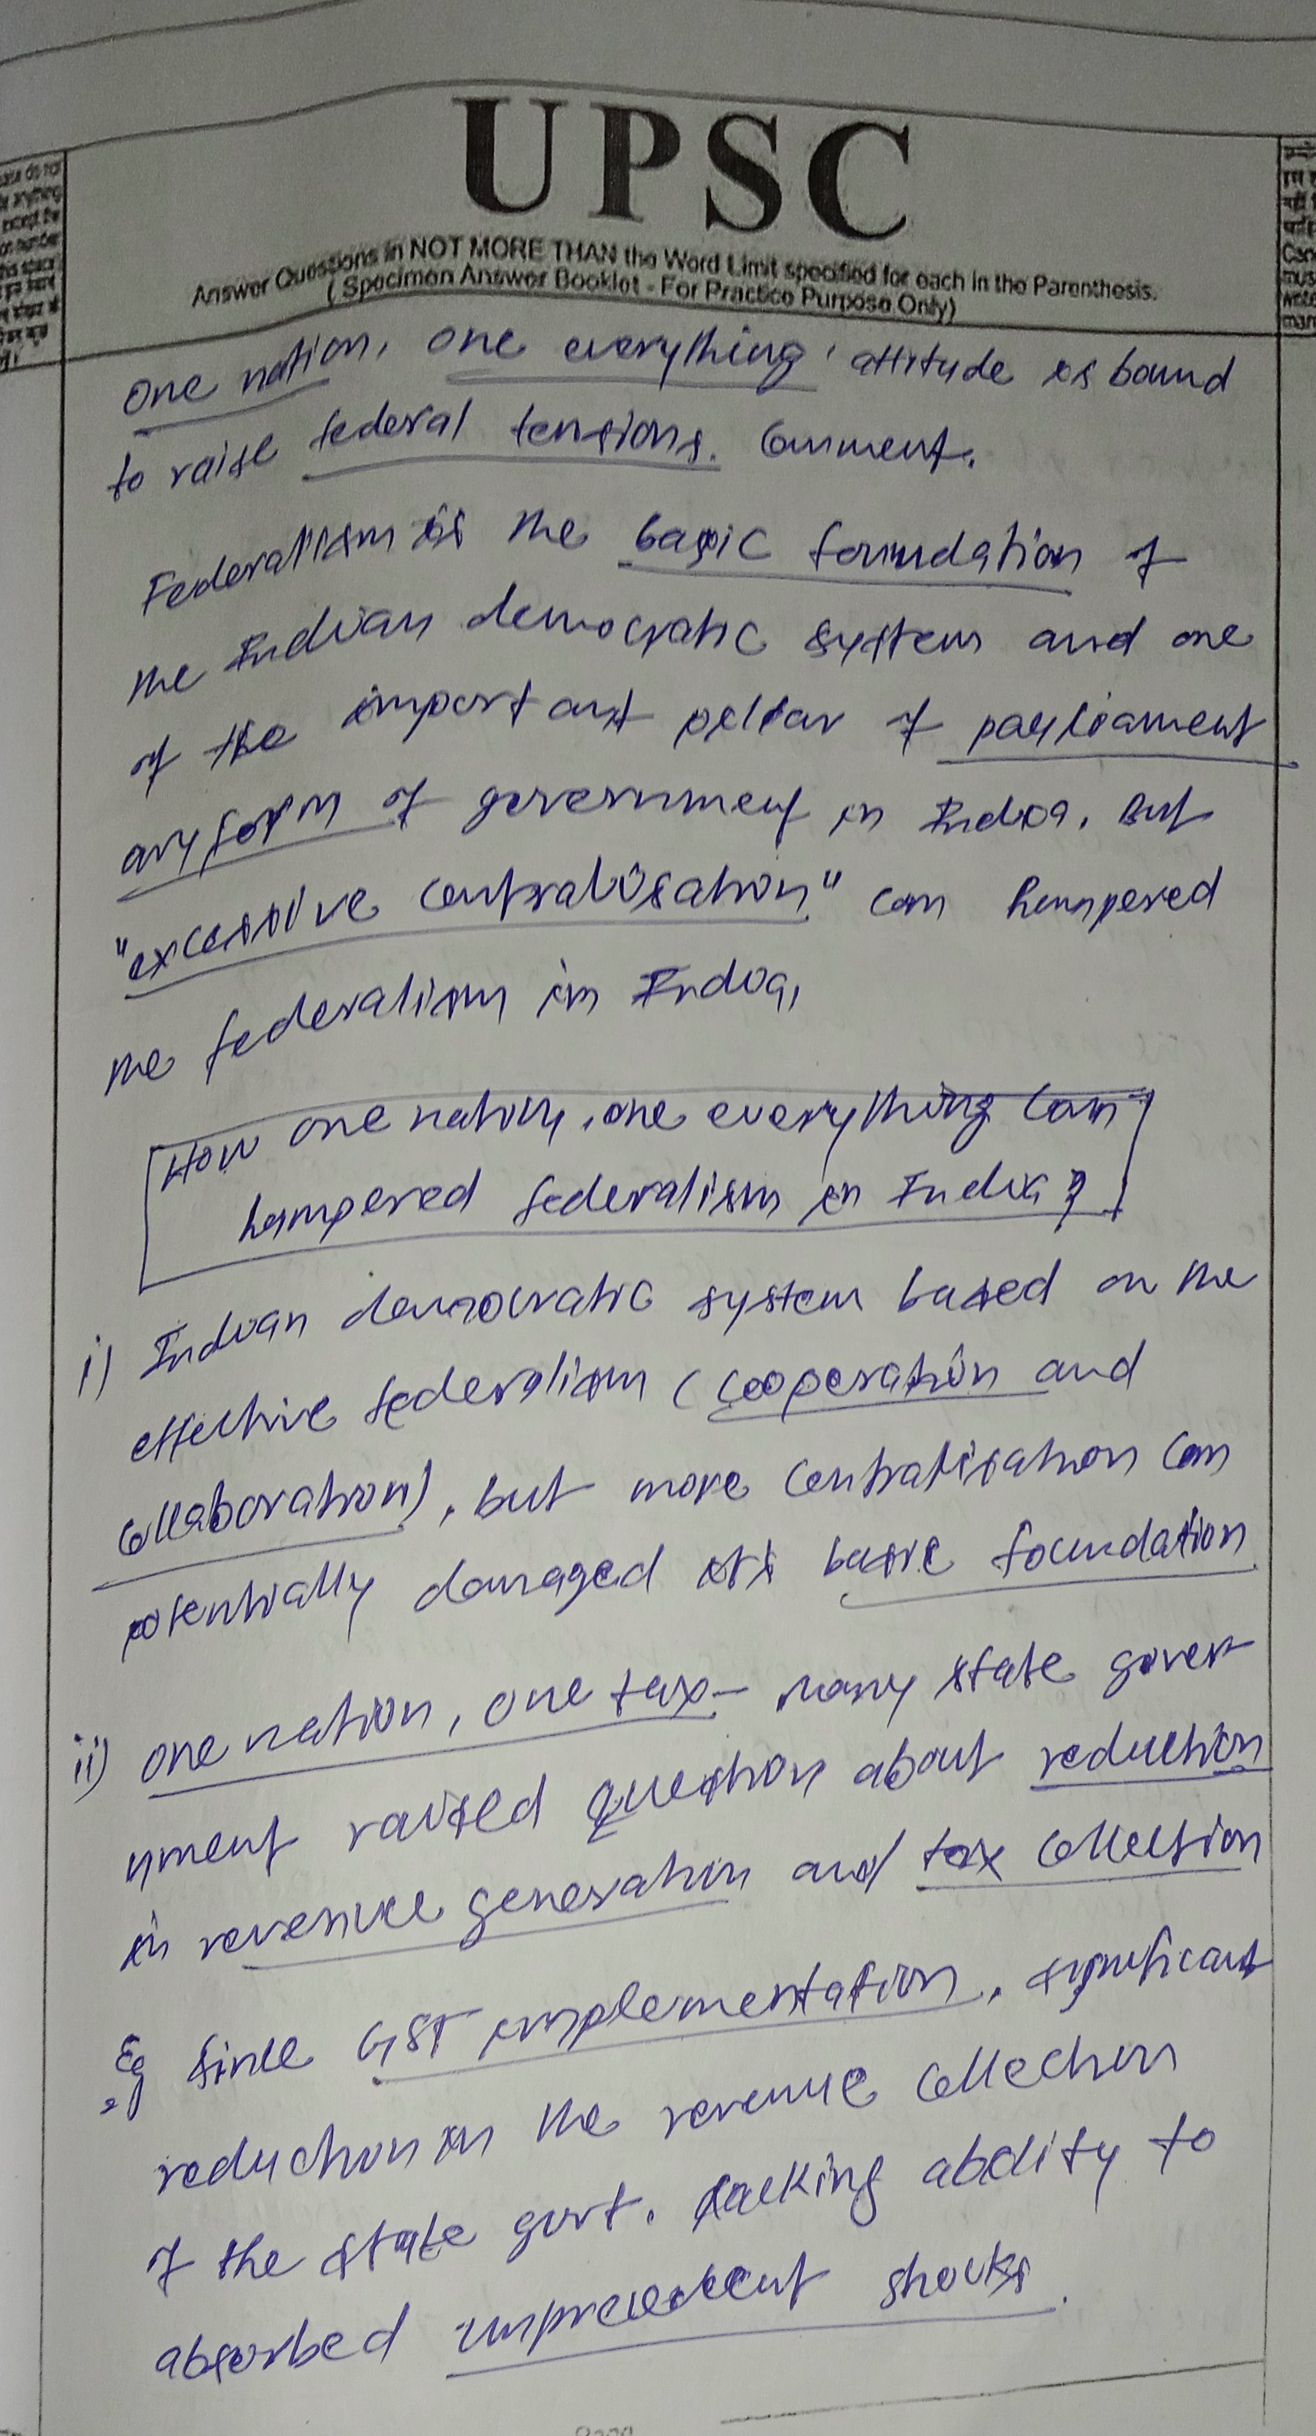 UPSC
Answer Questions in NOT MORE THAN the Word Limit specified for each in the Parenthesis.
(Specimen Answer Booklet - For Practice Purpose Only)
One nation, one everything' attitude is bound
to raise federal tensions. Comment.
Federalism is the basic foundation of
the Indian democratic system and one
of the important pillar of parliament
ary form of government in India. But
"excessive centralisation" can hampered
the federalism in India,
How one nation, one everything can
hampered federalism in India?
i) Indian democratic system based on the
effective federalism (cooperation and
collaboration), but more centralisation can
potentially damaged it's basic foundation
ii) one nation, one tax - many state gover
nment raised question about reduction
in revenue generation and tax collection
Eg Since GST implementation, significant
reduction in the revenue collection
of the state govt. lacking ability to
absorbed unprecedent shocks.